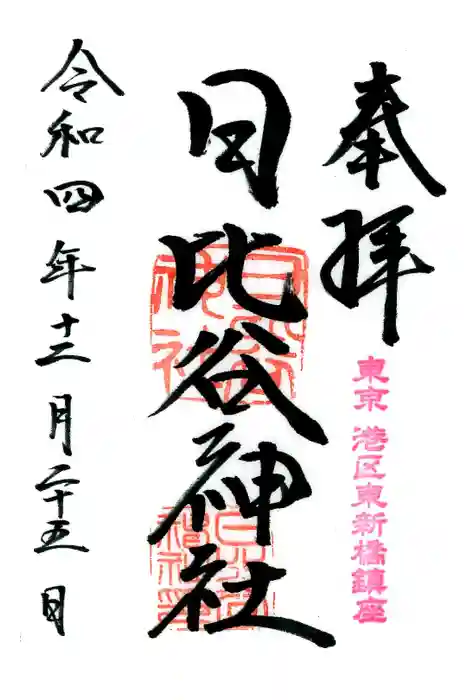 奉拝
東京 港区東新橋鎮座
日比谷神社
日比谷神社
令和四年十二月二十五日